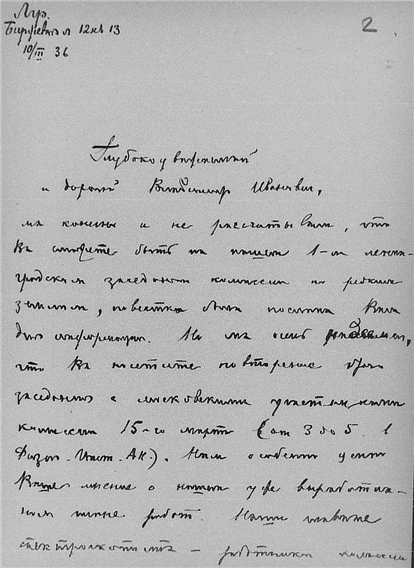 Лгр.
Биржевая л 12 кв 13
10/III 36
2
Глубокоуважаемый
и дорогой Владимир Иванович,
мы конечно и не рассчитывали, что
Вы сможете быть на нашем 1-ом ленин-
градском заседании комиссии по редким
землям, повестка была послана Вам
для информации. Но мы очень
что Вы посетите повторение
заседания с московскими участниками
комиссии 15-го марта (от 3 до 5 в
Физич. Инст. Ак.). Нам особенно ценно
Ваше мнение о нашем уже выработан-
ном плане работ. Наши главные
спектроскописта — работники комиссии